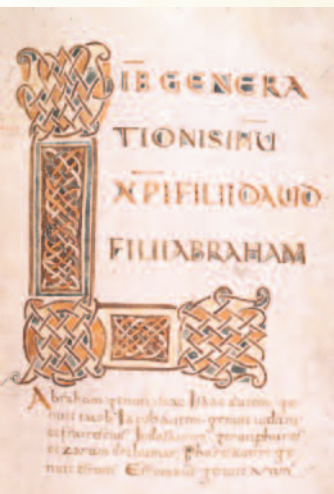 LIB GENERA
TIONIS IHU
XPI FILII DAUID
FILII ABRAHAM
Abraham genuit isac Isaac autem ge
nuit iacob Iacob autem genuit iudam
et fratres eius Iudas autem genuit phares
et zaram de thamar Phares autem ge
nuit esrom Esrom autem genuit aram